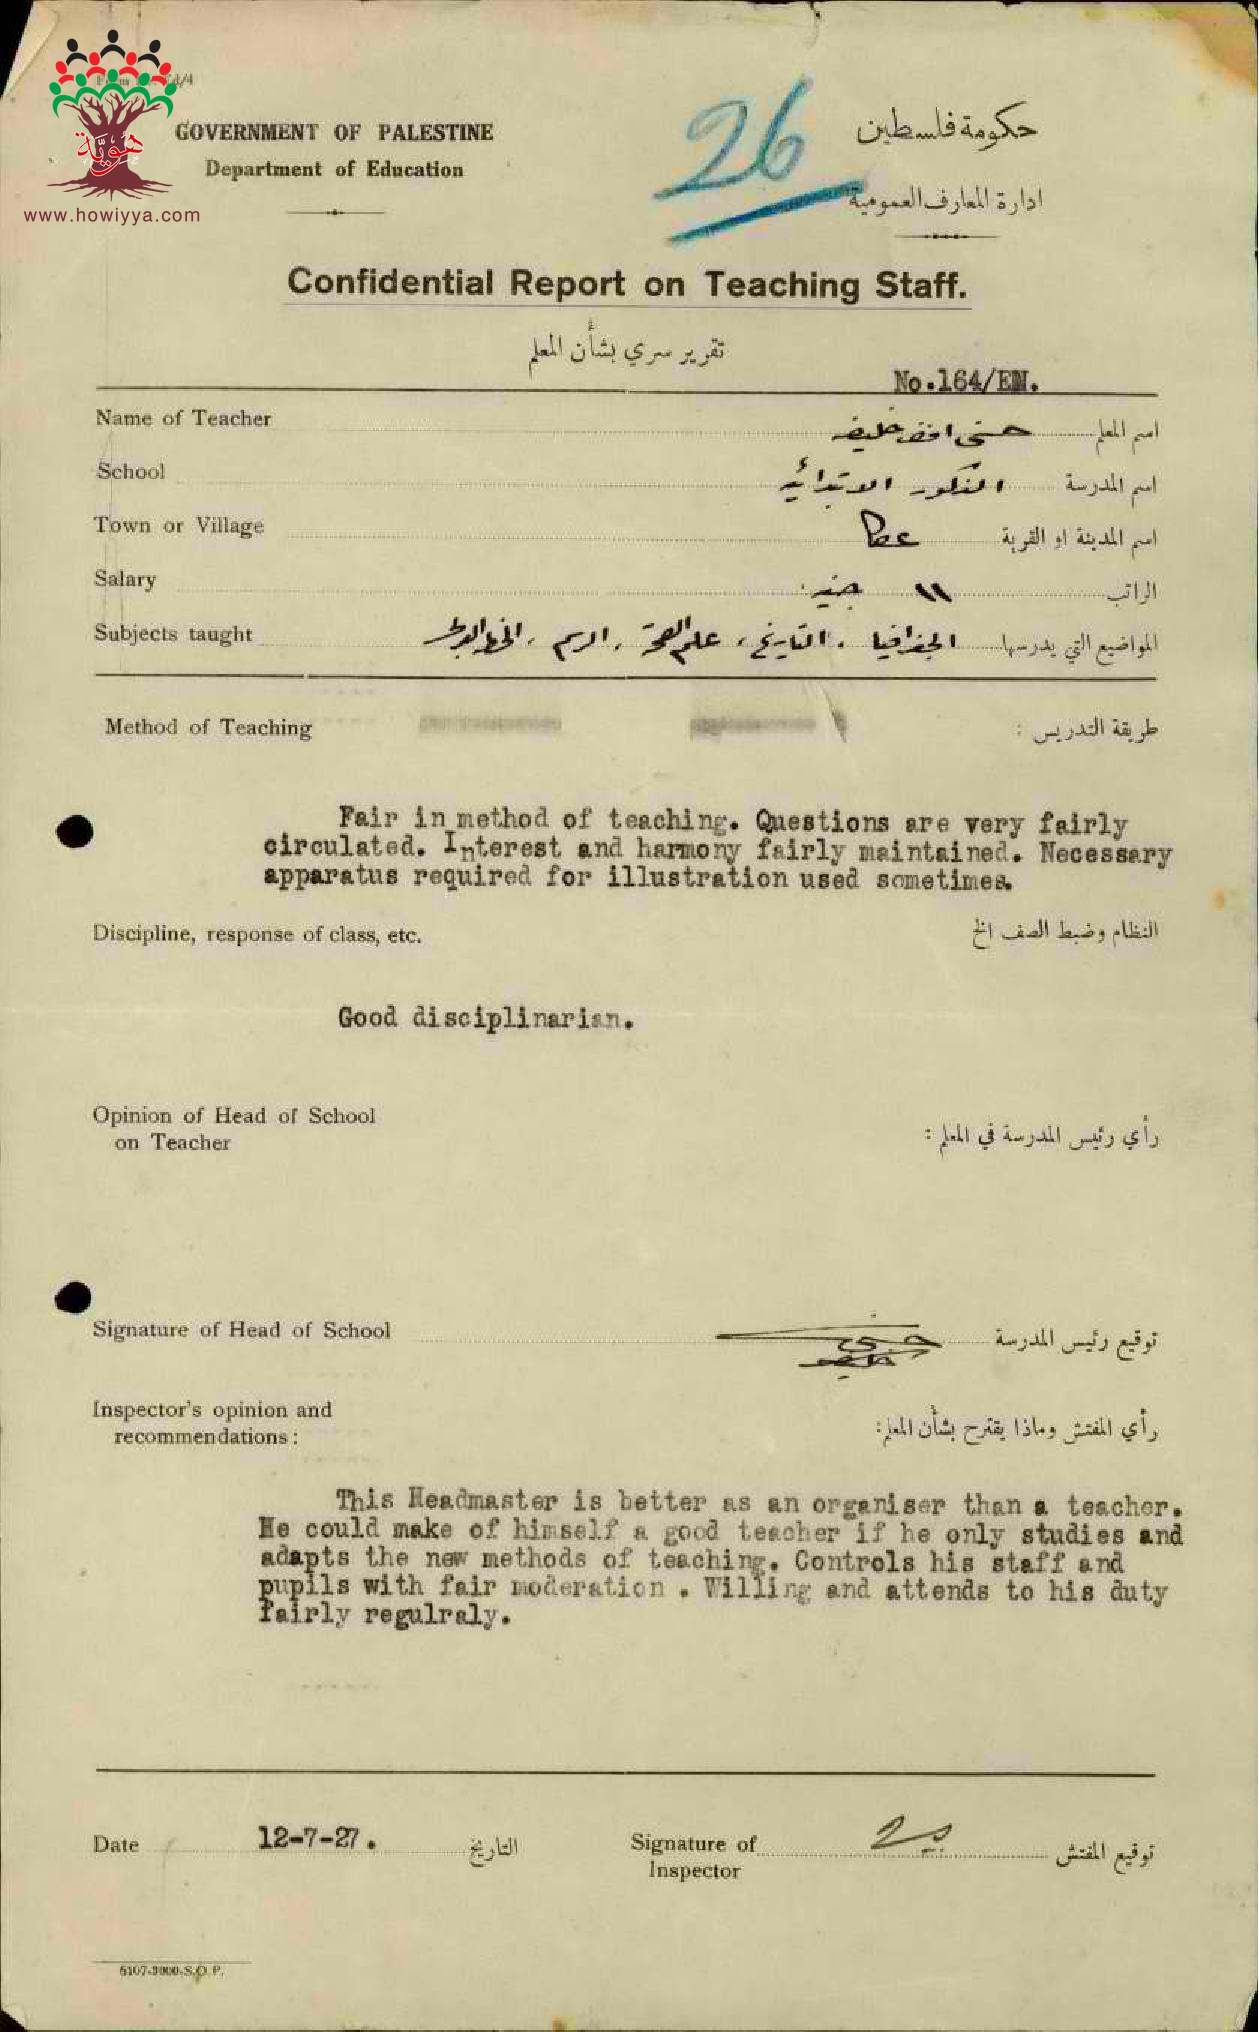 هوية
www.howiyya.com
GOVERNMENT OF PALESTINE
Department of Education
26
حكومة فلسطين
ادارة المعارف العمومية
Confidential Report on Teaching Staff.
تقرير سري بشأن المعلم
No.164/EN.
Name of Teacher حسني افندي خليفه اسم المعلم
School الذكور الابتدائيه اسم المدرسة
Town or Village عكا اسم المدينة او القرية
Salary ١١ جنيه الراتب
Subjects taught الجغرافيا ، التاريخ ، علم الصحة ، الرسم ، الخط المواضيع التي يدرسها
Method of Teaching طريقة التدريس :
Fair in method of teaching. Questions are very fairly
circulated. Interest and harmony fairly maintained. Necessary
apparatus required for illustration used sometimes.
Discipline, response of class, etc. النظام وضبط الصف الخ
Good disciplinarian.
Opinion of Head of School
on Teacher رأي رئيس المدرسة في المعلم :
Signature of Head of School حسني خليفه توقيع رئيس المدرسة
Inspector's opinion and
recommendations : رأي المفتش وماذا يقترح بشأن المعلم:
This Headmaster is better as an organiser than a teacher.
He could make of himself a good teacher if he only studies and
adapts the new methods of teaching. Controls his staff and
pupils with fair moderation . Willing and attends to his duty
fairly regulraly.
Date 12-7-27. التاريخ Signature of
Inspector توقيع المفتش
6107-3000-S.O.P.